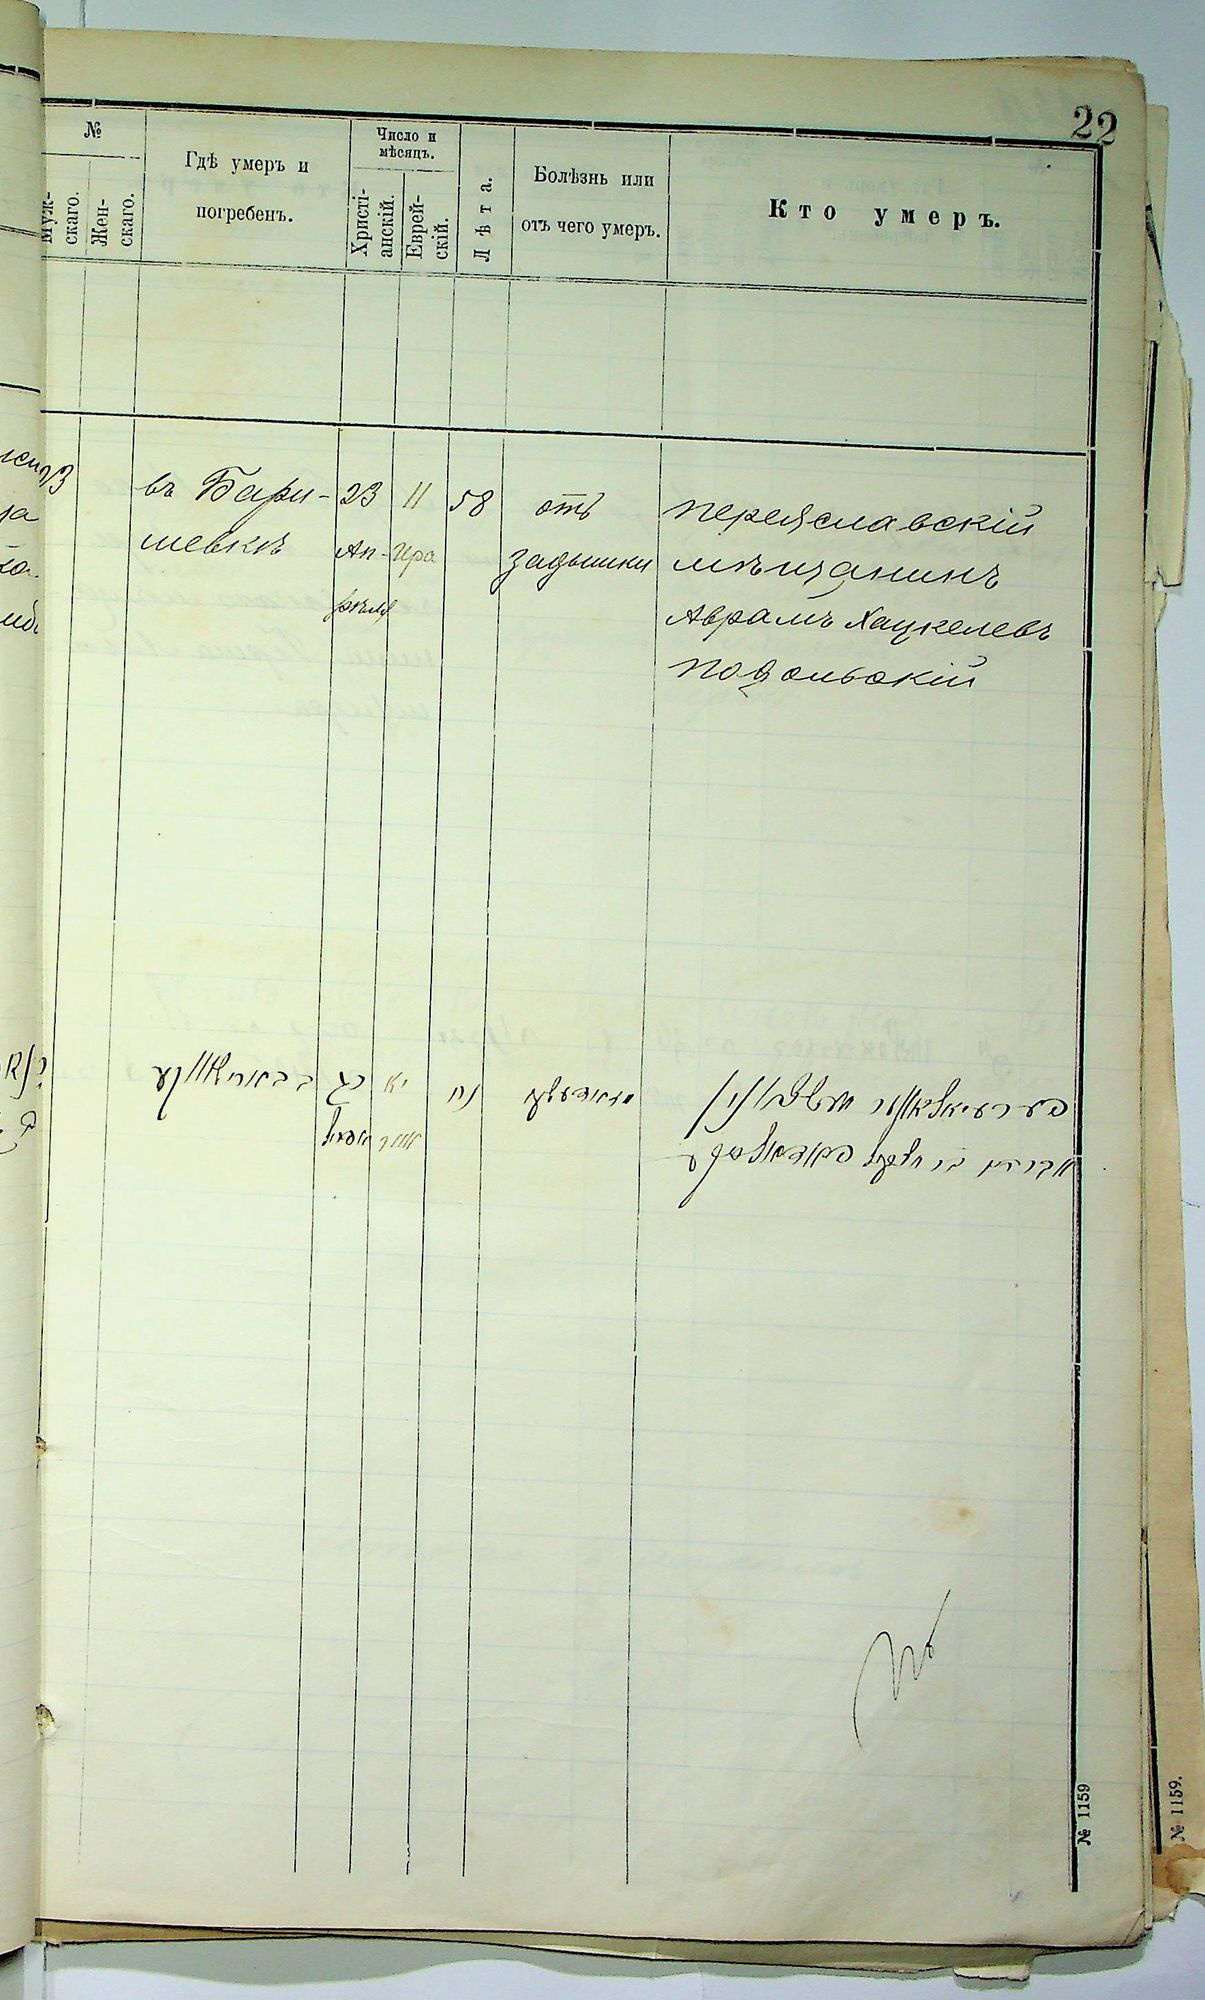 22
№
Муж-
скаго.
Жен-
скаго.
Гдѣ умеръ и
погребенъ.
Число и
мѣсяцъ.
Христі-
анскій.
Еврей-
скій.
Лѣта.
Болѣзнь или
отъ чего умеръ.
Кто умеръ.
23
въ Бари-
шевкѣ
23
Ап-
рѣля
11
Ира
58
отъ
задышки
переяславскій
мѣщанинъ
Аврамъ Хацкелевъ
подольскій
כג
אפריל
יא
אייר
נח
אברהם
№ 1159
№ 1159.